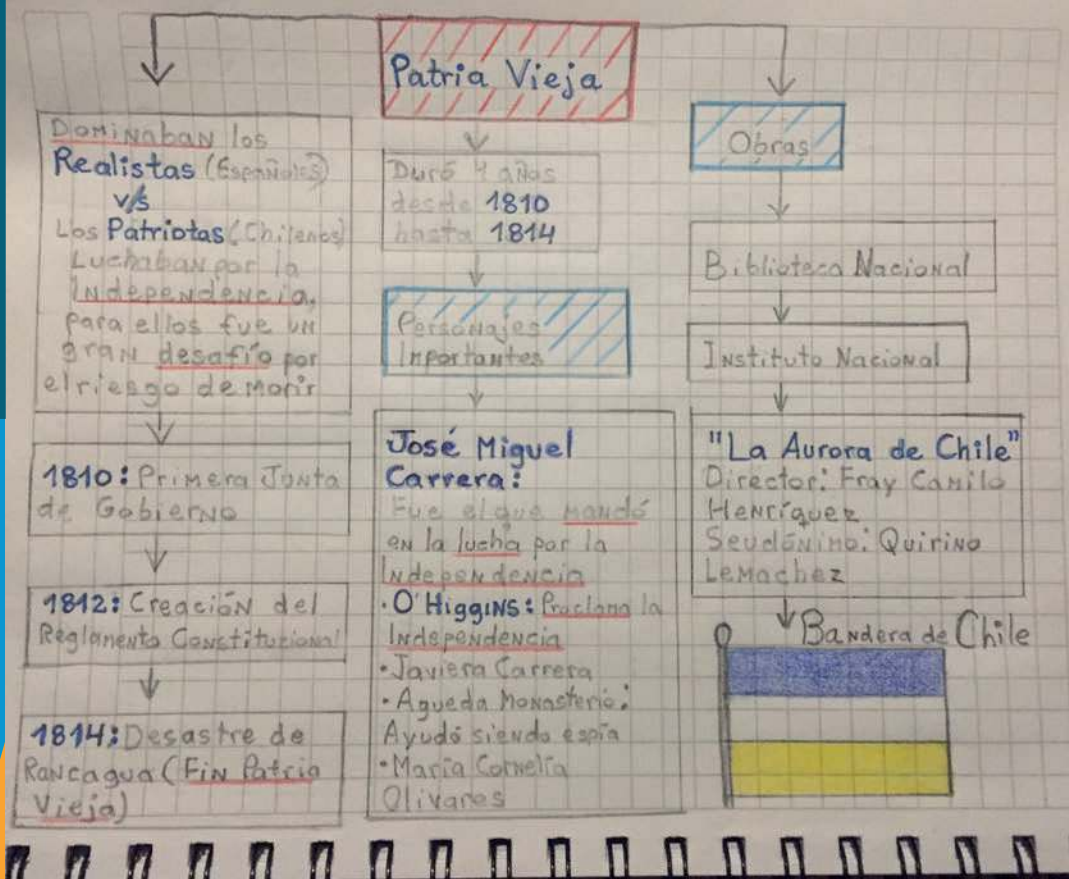 Patria Vieja
Dominaban los
Realistas (Españoles)
v/s
Los Patriotas (Chilenos)
Luchaban por la
Independencia,
para ellos fue un
gran desafío por
el riesgo de morir
1810: Primera Junta
de Gobierno
1812: Creación del
Reglamento Constitucional
1814: Desastre de
Rancagua (Fin Patria
Vieja)
Duró 4 años
desde 1810
hasta 1814
Personajes
Importantes
José Miguel
Carrera:
Fue el que mandó
en la lucha por la
Independencia
·O'Higgins: Proclama la
Independencia
·Javiera Carrera
·Agueda Monasterio:
Ayudó siendo espía
·María Cornelia
Olivares
Obras
Biblioteca Nacional
Instituto Nacional
"La Aurora de Chile"
Director: Fray Camilo
Henríquez
Seudónimo: Quirino
Lemachez
Bandera de Chile